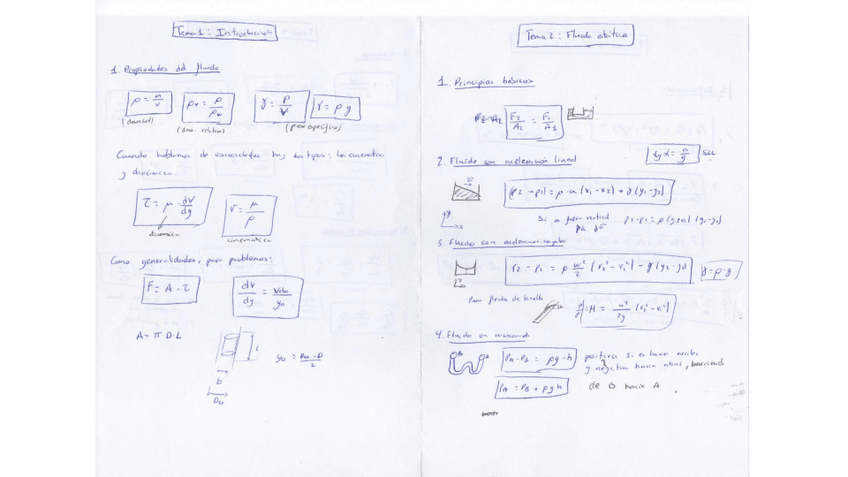 Tema 1: Introducción
1. Propiedades del fluido
ρ = m/v
(densidad)
ρr = ρ/ρw
(den. relativa)
γ = P/V
γ = ρ g
(peso específico)
Cuando hablamos de viscosidades hay dos tipos: la cinemática
y dinámica.
τ = μ · dv/dy
dinámica
ν = μ/ρ
cinemática
Como generalidades, para problemas:
F = A · τ
dv/dy = /y0
A = π·D·L
L
D
y0 = - D/2
Tema 2: Fluido estático
1. Principios básicos
F2/A2 = F1/A1
2. Fluido con aceleración lineal
tg α = a/g
p2 - p1 = ρ·a (x1 - x2) + γ (y1 - y2)
y
x
Si a fuera vertical
p2 - p1 = ρ (g±a) (y1 - y2)
3. Fluido con aceleración
p2 - p1 = ρ w²/2 (r2² - r1²) - γ (y2 - y1)
γ = ρ·g
H = w²/2g (r2² - r1²)
4. Fluido en
B
A
PA - PB = ρg·h
positiva si hacia arriba
y negativa hacia abajo,
PA = PB + ρgh
de B hacia A